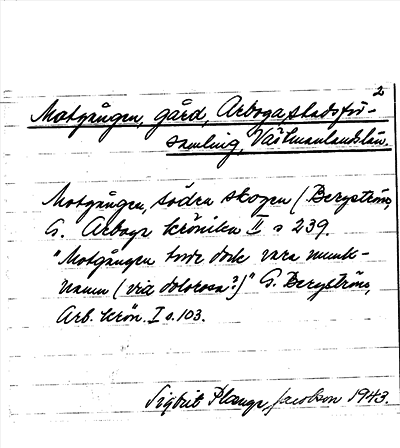 2
Motgången, gård, Arboga stadsför-
samling, Västmanlands län.
Motgången, södra skogen (Bergström,
G. Arboga krönika II s 239.
"Motgången torde dock vara munk-
namn (via dolorosa?)" G. Bergström,
Arb. krön. I s. 103.
Sigbrit Plange Jacobson 1943.